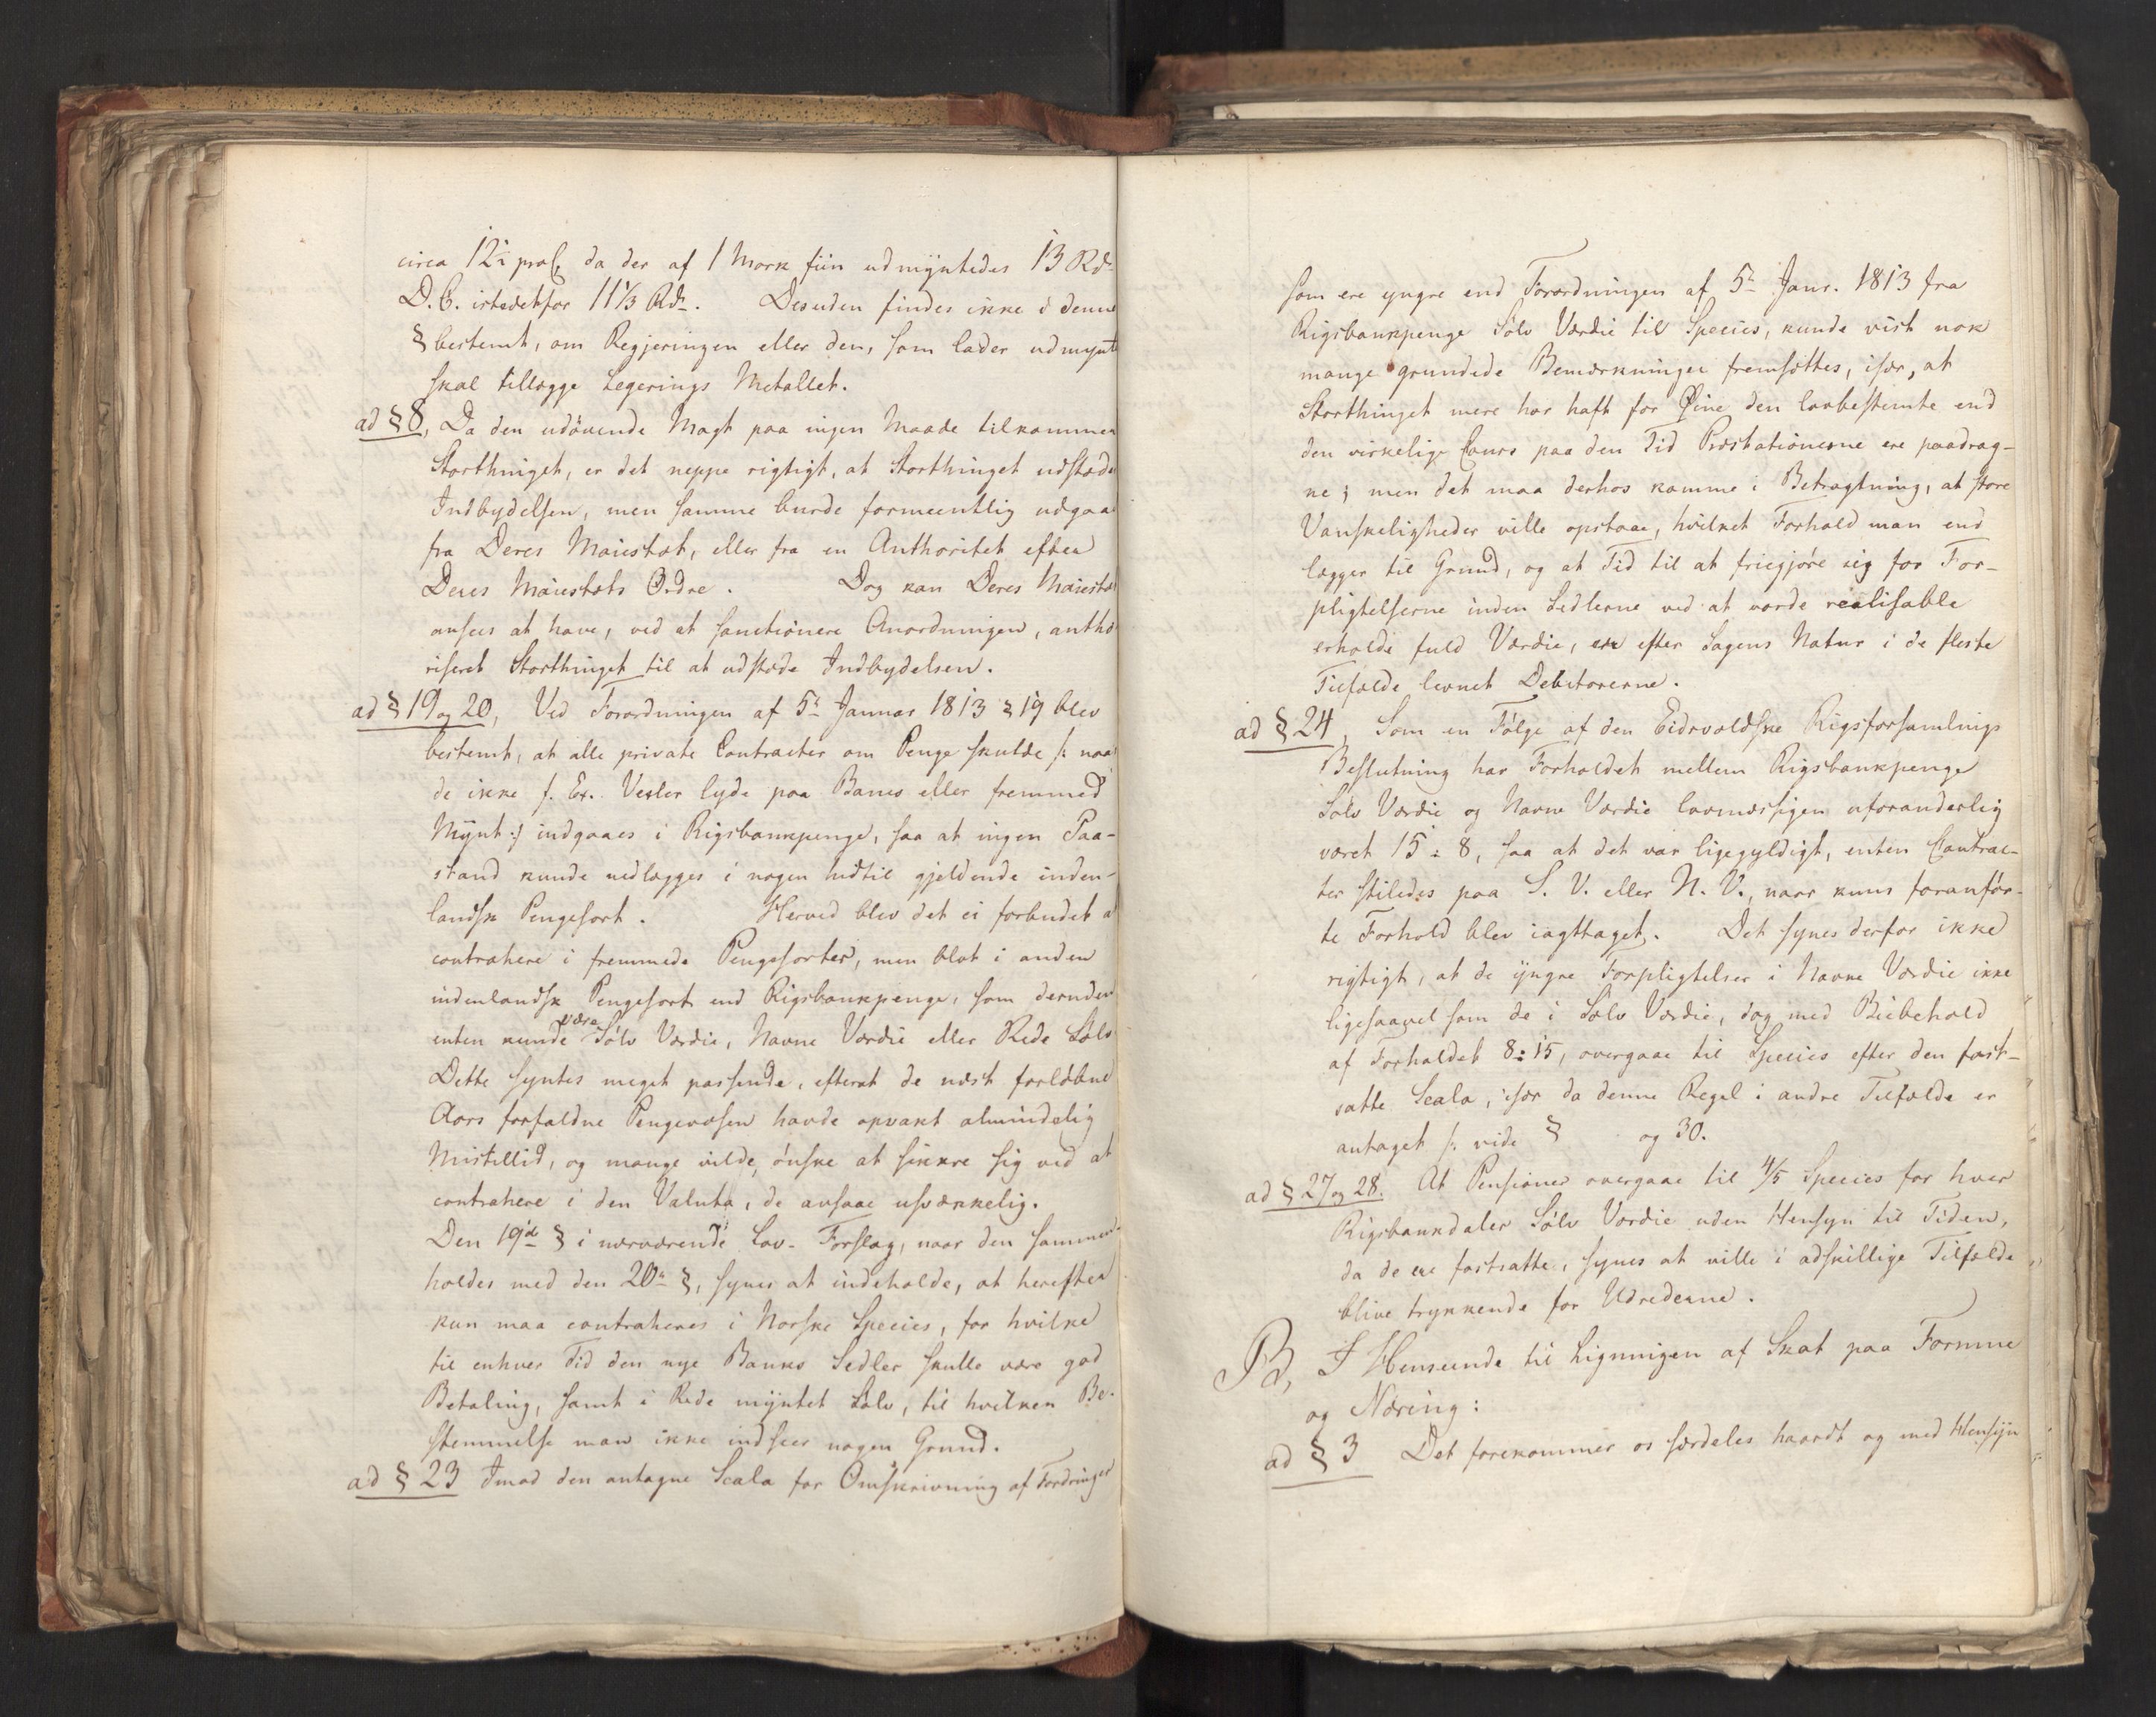 circa 12½ proC, da der af 1 Mark fiin udmyntedes 13 Rdr
D.C. istedetfor 11⅓ Rdr. Desuden findes ikke i denne
§ bestemt, om Regjeringen eller den, som lader udmynte
skal tillægge Legerings Metallet.
ad § 8, Da den udövende Magt paa ingen Maade tilkommer
Storthinget, er det neppe rigtigt, at Storthinget udstæder
Indbydelsen, men samme burde formeentlig udgaae
fra Deres Maiestæt, eller fra en Authoritet efter
Deres Maiestæts Ordre. Dog kan Deres Maiestæt
ansees at have, ved at sanctionere Anordningen, autho-
riseret Storthinget til at udstæde Indbydelsen.
ad § 19 og 20, Ved Forordningen af 5te Januar 1813 § 19 blev
bestemt, at alle private Contracter om Penge skulde /: naar
de ikke f. Ex. Vexler lyde paa Banco eller fremmed
Mynt :/ indgaaes i Rigsbankpenge, saa at ingen Paa-
stand kunde nedlægges i nogen hidtil gjeldende inden-
landsk Pengesort. Herved blev det ei forbudet at
contrahere i fremmede Pengesorter, men blot i anden
indenlandsk Pengesort end Rigsbankpenge, som desuden
enten kunde være Sölv Værdie, Navne Værdie eller Rede Sölv
Dette syntes meget passende, efterat de næst forlöbne
Aars forfaldne Pengevæsen havde opvakt almindelig
Mistillid, og mange vilde önske at sikkre sig ved at
contrahere i den Valuta, de ansaae usvækkelig.
Den 19de § i nærværende Lov-Forslag, naar den sammen-
holdes med den 20de §, synes at indeholde, at herefter
kun maa contraheres i Norske Species, for hvilke
til enhver Tid den nye Banks Sedler skulle være god
Betaling, samt i Rede myntet Sölv, til hvilken Be-
stemmelse man ikke indseer nogen Grund.
ad § 23 Imod den antagne Scala for Omskrivning af Fordringer
som ere yngre end Forordningen af 5te Janr. 1813 fra
Rigsbankpenge Sölv Værdie til Species, kunde vist nok
mange grundede Bemærkninger fremsættes, især, at
Storthinget mere har haft for Öine den lovbestemte end
den virkelige Cours paa den Tid Præstationerne ere paadrag-
ne; men det maa derhos komme i Betragtning, at store
Vanskeligheder ville opstaae, hvilket Forhold man end
lægger til Grund, og at Tid til at friegjöre sig for For-
pligtelserne inden Sedlerne ved at vorde realisable
erholde fuld Værdie, er efter Sagens Natur i de fleste
Tilfælde levnet Debitorerne.
ad § 24, Som en Fölge af den Eidsvoldske Rigsforsamlings
Beslutning har Forholdet mellem Rigsbankpenge
Sölv Værdie og Navne Værdie lovmæssigen uforanderlig
været 15 : 8, saa at det var ligegyldigt, enten Contrac-
ter stiledes paa S. V. eller N. V., naar kuns foranför-
te Forhold blev iagttaget. Det synes derfor ikke
rigtigt, at de yngre Forpligtelser i Navne Værdie ikke
ligesaavel som de i Sölv Værdie, dog med Biebehold
af Forholdet 8 : 15, overgaae til Species efter den fast-
satte Scala, især da denne Regel i andre Tilfælde er
antaget /: vide § og 30.
ad § 27 og 28. At Pensioner overgaae til 4/5 Species for hver
Rigsbankdaler Sölv Værdie uden Hensyn til Tiden,
da de ere fastsatte, synes at ville i adskillige Tilfælde
blive trykkende for Udrederne.
B, I Henseende til Ligningen af Skat paa Formue
og Næring:
ad § 3 Det forekommer os særdeles haardt og med Hensyn